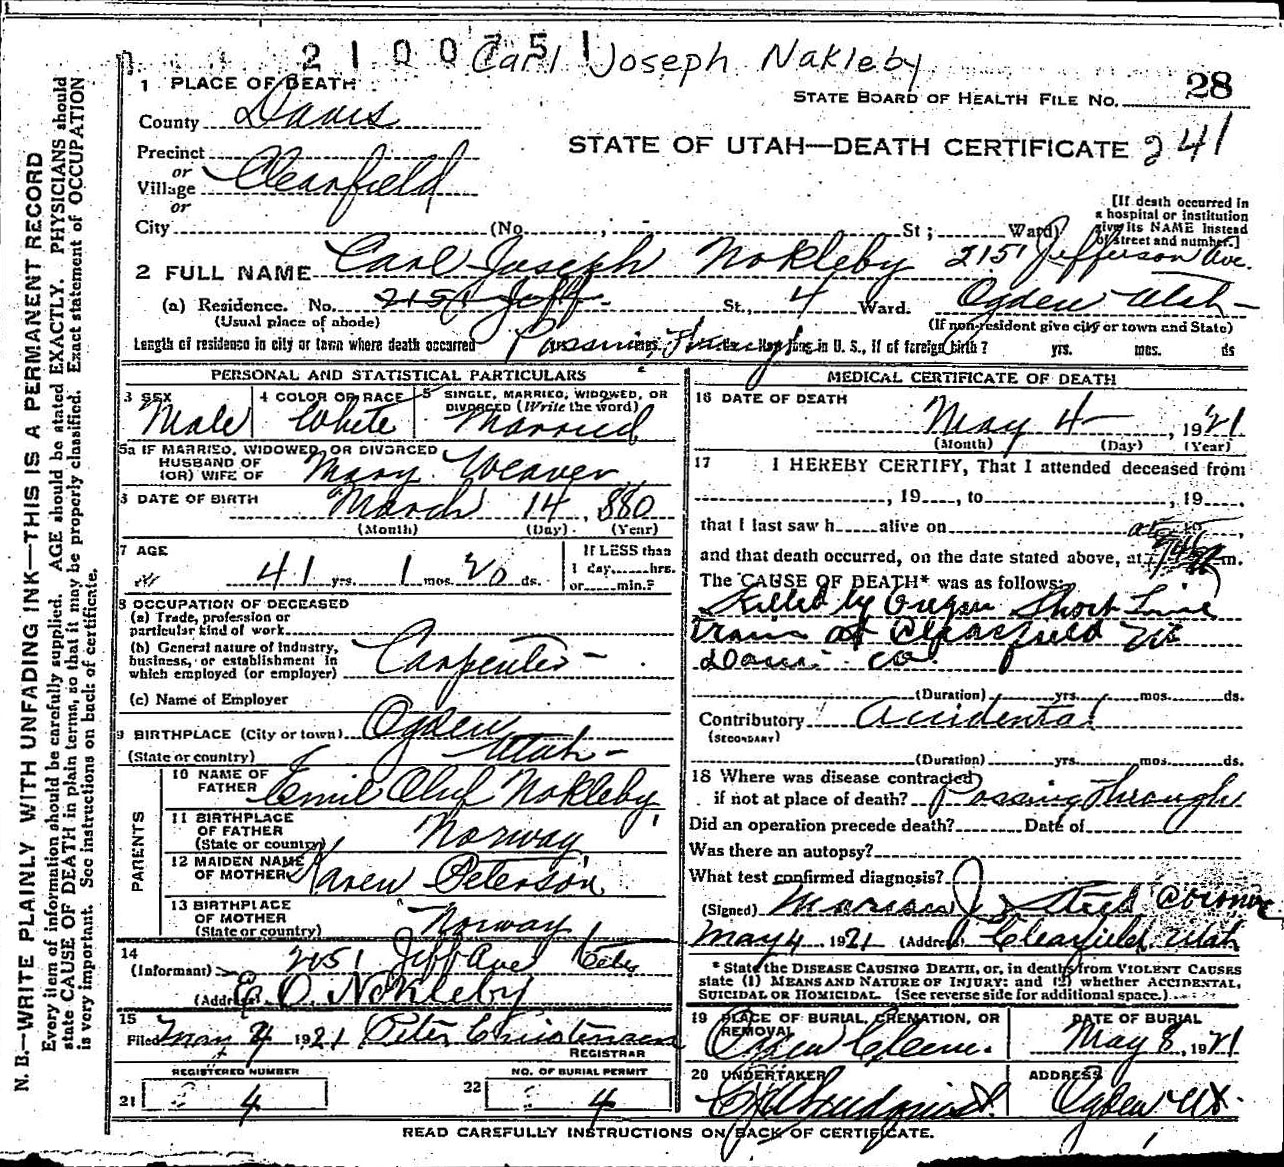 2100751
Carl Joseph Nakleby
28
STATE BOARD OF HEALTH FILE NO.
STATE OF UTAH—DEATH CERTIFICATE 241
1 PLACE OF DEATH
County Davis
Precinct
or
Village Clearfield
or
City (No. , St ; Ward)
[If death occurred in
a hospital or institution
give its NAME instead
of street and number.]
2 FULL NAME Carl Joseph Nokleby 2151 Jefferson Ave.
(a) Residence. No. 2151 Jeff. St., 4 Ward. Ogden Utah
(Usual place of abode) (If non-resident give city or town and State)
Length of residence in city or town where death occurred Passing Through in U. S., if of foreign birth? yrs. mos. ds
PERSONAL AND STATISTICAL PARTICULARS
3 SEX
Male
4 COLOR OR RACE
White
5 SINGLE, MARRIED, WIDOWED, OR
DIVORCED (Write the word)
Married
5a IF MARRIED, WIDOWED, OR DIVORCED
HUSBAND OF
(OR) WIFE OF Mary Weaver
6 DATE OF BIRTH March 14, 880
(Month) (Day) (Year)
7 AGE
41 yrs. 1 mos. 20 ds.
If LESS than
1 day, hrs.
or min.?
8 OCCUPATION OF DECEASED
(a) Trade, profession or
particular kind of work
(b) General nature of industry,
business, or establishment in
which employed (or employer) Carpenter
(c) Name of Employer
9 BIRTHPLACE (City or town) Ogden
(State or country) Utah
PARENTS
10 NAME OF
FATHER Emil Oluf Nokleby
11 BIRTHPLACE
OF FATHER
(State or country) Norway
12 MAIDEN NAME
OF MOTHER Karen Peterson
13 BIRTHPLACE
OF MOTHER
(State or country) Norway
14
(Informant) 2151 Jeff Ave
(Address) E. O. Nokleby
15
Filed May 4 1921 Peter Christensen
REGISTRAR
REGISTERED NUMBER
21 4
NO. OF BURIAL PERMIT
22 4
MEDICAL CERTIFICATE OF DEATH
16 DATE OF DEATH
May 4, 1921
(Month) (Day) (Year)
17 I HEREBY CERTIFY, That I attended deceased from
, 19 , to , 19 .
that I last saw h alive on
and that death occurred, on the date stated above, at m.
The CAUSE OF DEATH* was as follows:
Killed by Oregon Short Line
train at Clearfield Ut
Davis co.
(Duration) yrs. mos. ds.
Contributory Accidental
(SECONDARY)
(Duration) yrs. mos. ds.
18 Where was disease contracted
if not at place of death? Passing Through
Did an operation precede death? Date of
Was there an autopsy?
What test confirmed diagnosis?
(Signed) J. Steed Coroner
May 4 1921 (Address) Clearfield, Utah
* State the DISEASE CAUSING DEATH, or, in deaths from VIOLENT CAUSES
state (1) MEANS AND NATURE OF INJURY; and (2) whether ACCIDENTAL,
SUICIDAL OR HOMICIDAL. (See reverse side for additional space.)
19 PLACE OF BURIAL, CREMATION, OR
REMOVAL
Ogden
DATE OF BURIAL
May 8, 1921
20 UNDERTAKER
ADDRESS
Ogden Ut.
READ CAREFULLY INSTRUCTIONS ON BACK OF CERTIFICATE.
N. B.—WRITE PLAINLY WITH UNFADING INK—THIS IS A PERMANENT RECORD
Every item of information should be carefully supplied. AGE should be stated EXACTLY. PHYSICIANS should
state CAUSE OF DEATH in plain terms, so that it may be properly classified. Exact statement of OCCUPATION
is very important. See instructions on back of certificate.